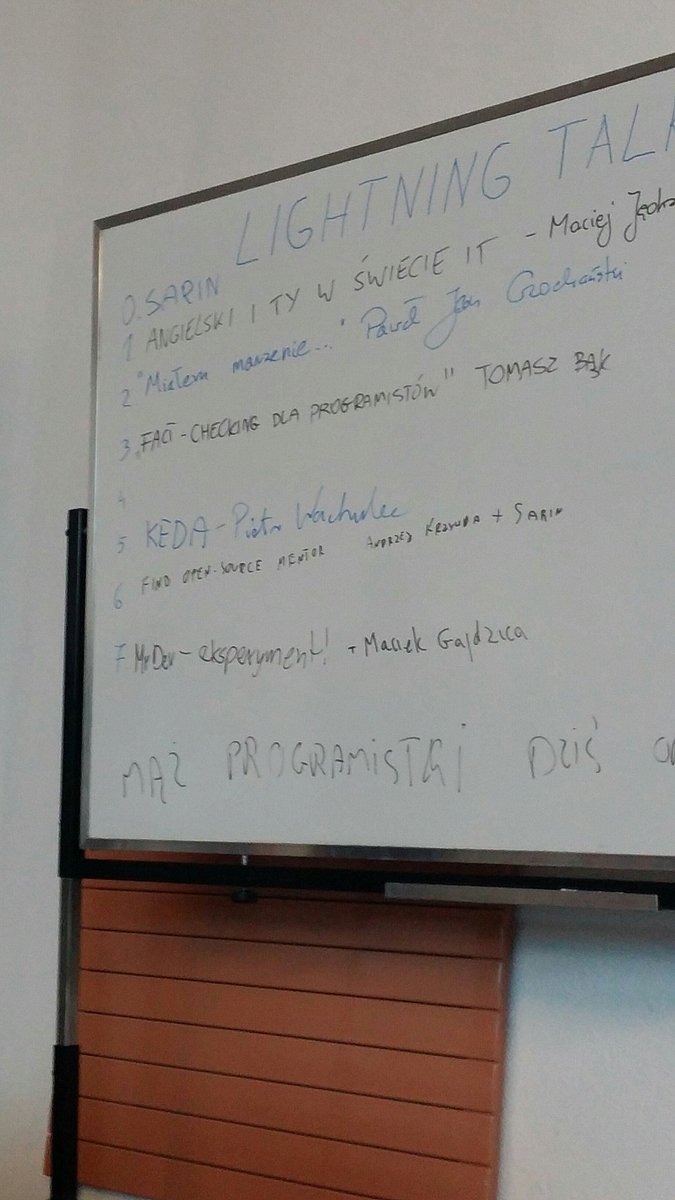 LIGHTNING TALK
0. SARIN
1 ANGIELSKI I TY W ŚWIECIE IT - Maciej
2 "Miałem marzenie..." Paweł Jan
3 "FACT-CHECKING DLA PROGRAMISTÓW" TOMASZ BĄK
4
5 KEDA - Piotr Wachulec
6 FIND OPEN-SOURCE MENTOR ANDRZEJ KRZYWDA + SARIN
7 MrDev - eksperyment! + Maciek Gajdzica
MĄŻ PROGRAMISTKI DZIŚ